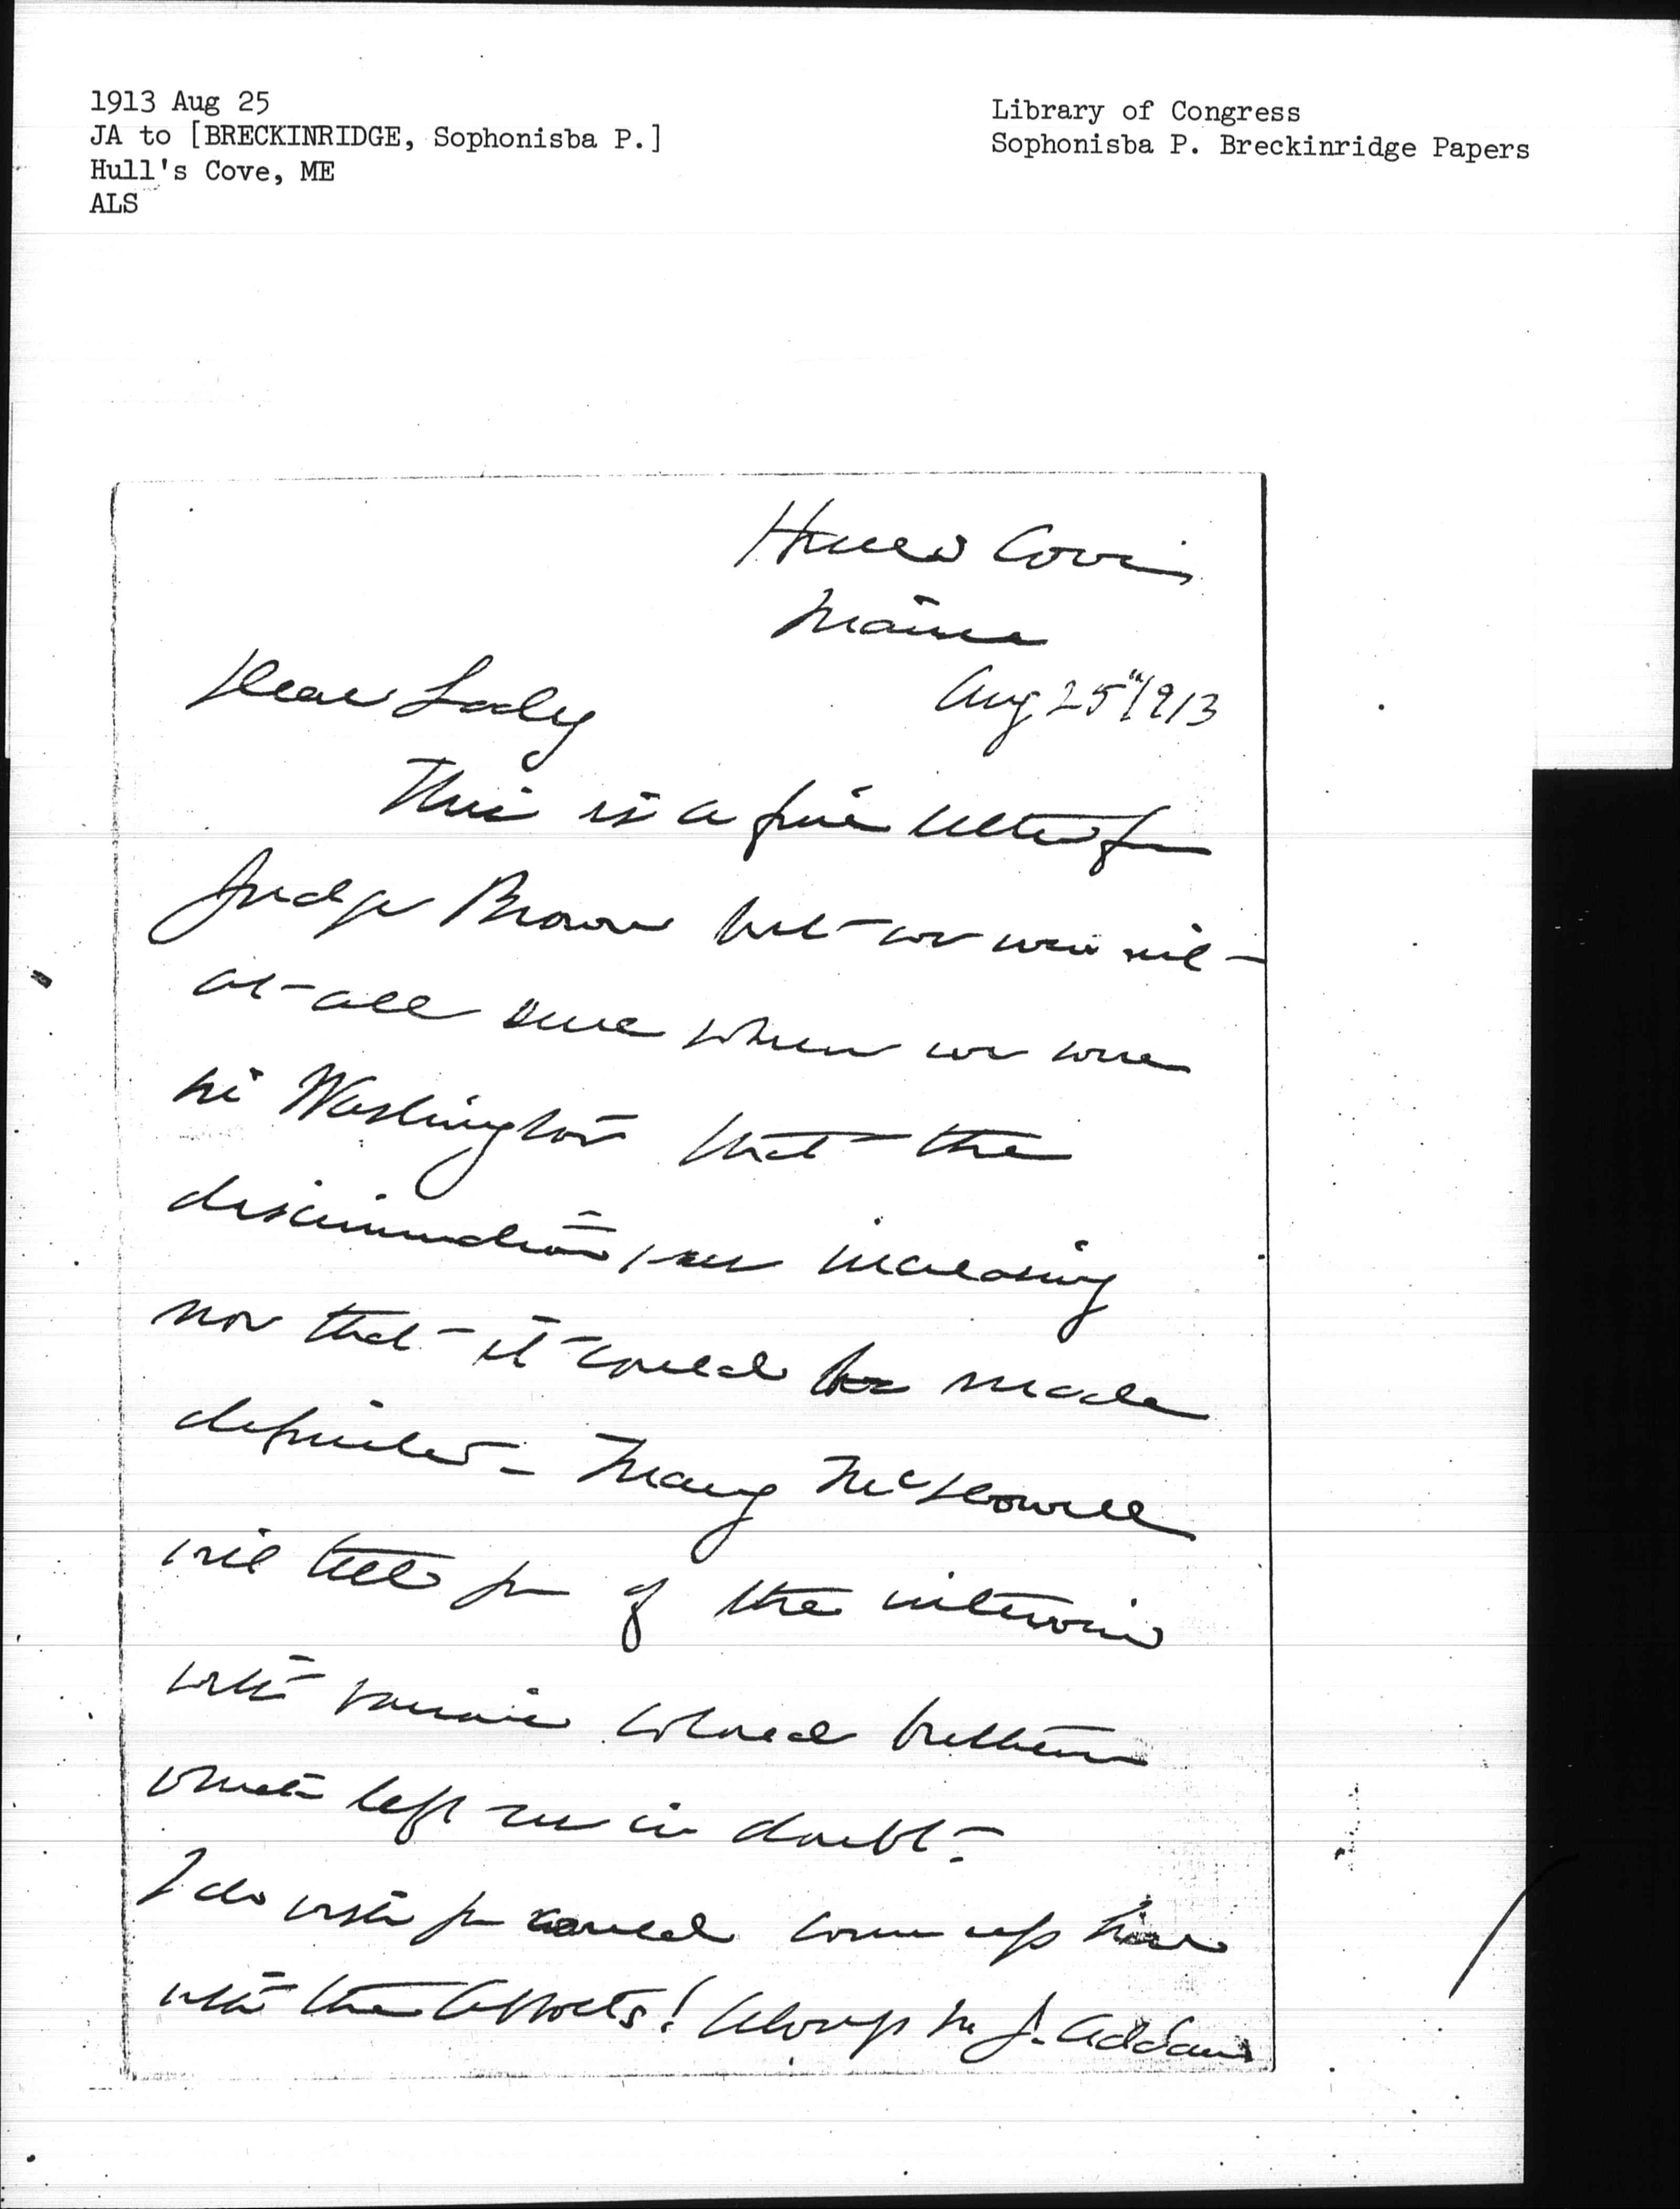 1913 Aug 25
JA to [BRECKINRIDGE, Sophonisba P.]
Hull's Cove, ME
ALS
Library of Congress
Sophonisba P. Breckinridge Papers
Hulls Cove,
Maine
Aug 25" 1913
Dear Lady
This is a fine letter from
Judge Brown but we were not
at all sure when we were
in Washington that the
discrimination, was increasing
nor that it could be made
definite – Mary McDowell
will tell you of the interview
with various colored brethren
which left us in doubt –
I do wish you could come up here
with the Abbotts! Always yrs J. Addams